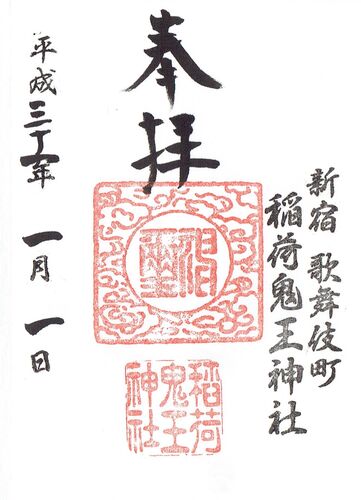 新宿 歌舞伎町
稲荷鬼王神社
奉拝
稲荷
鬼王
神社
平成三十年 一月 一日